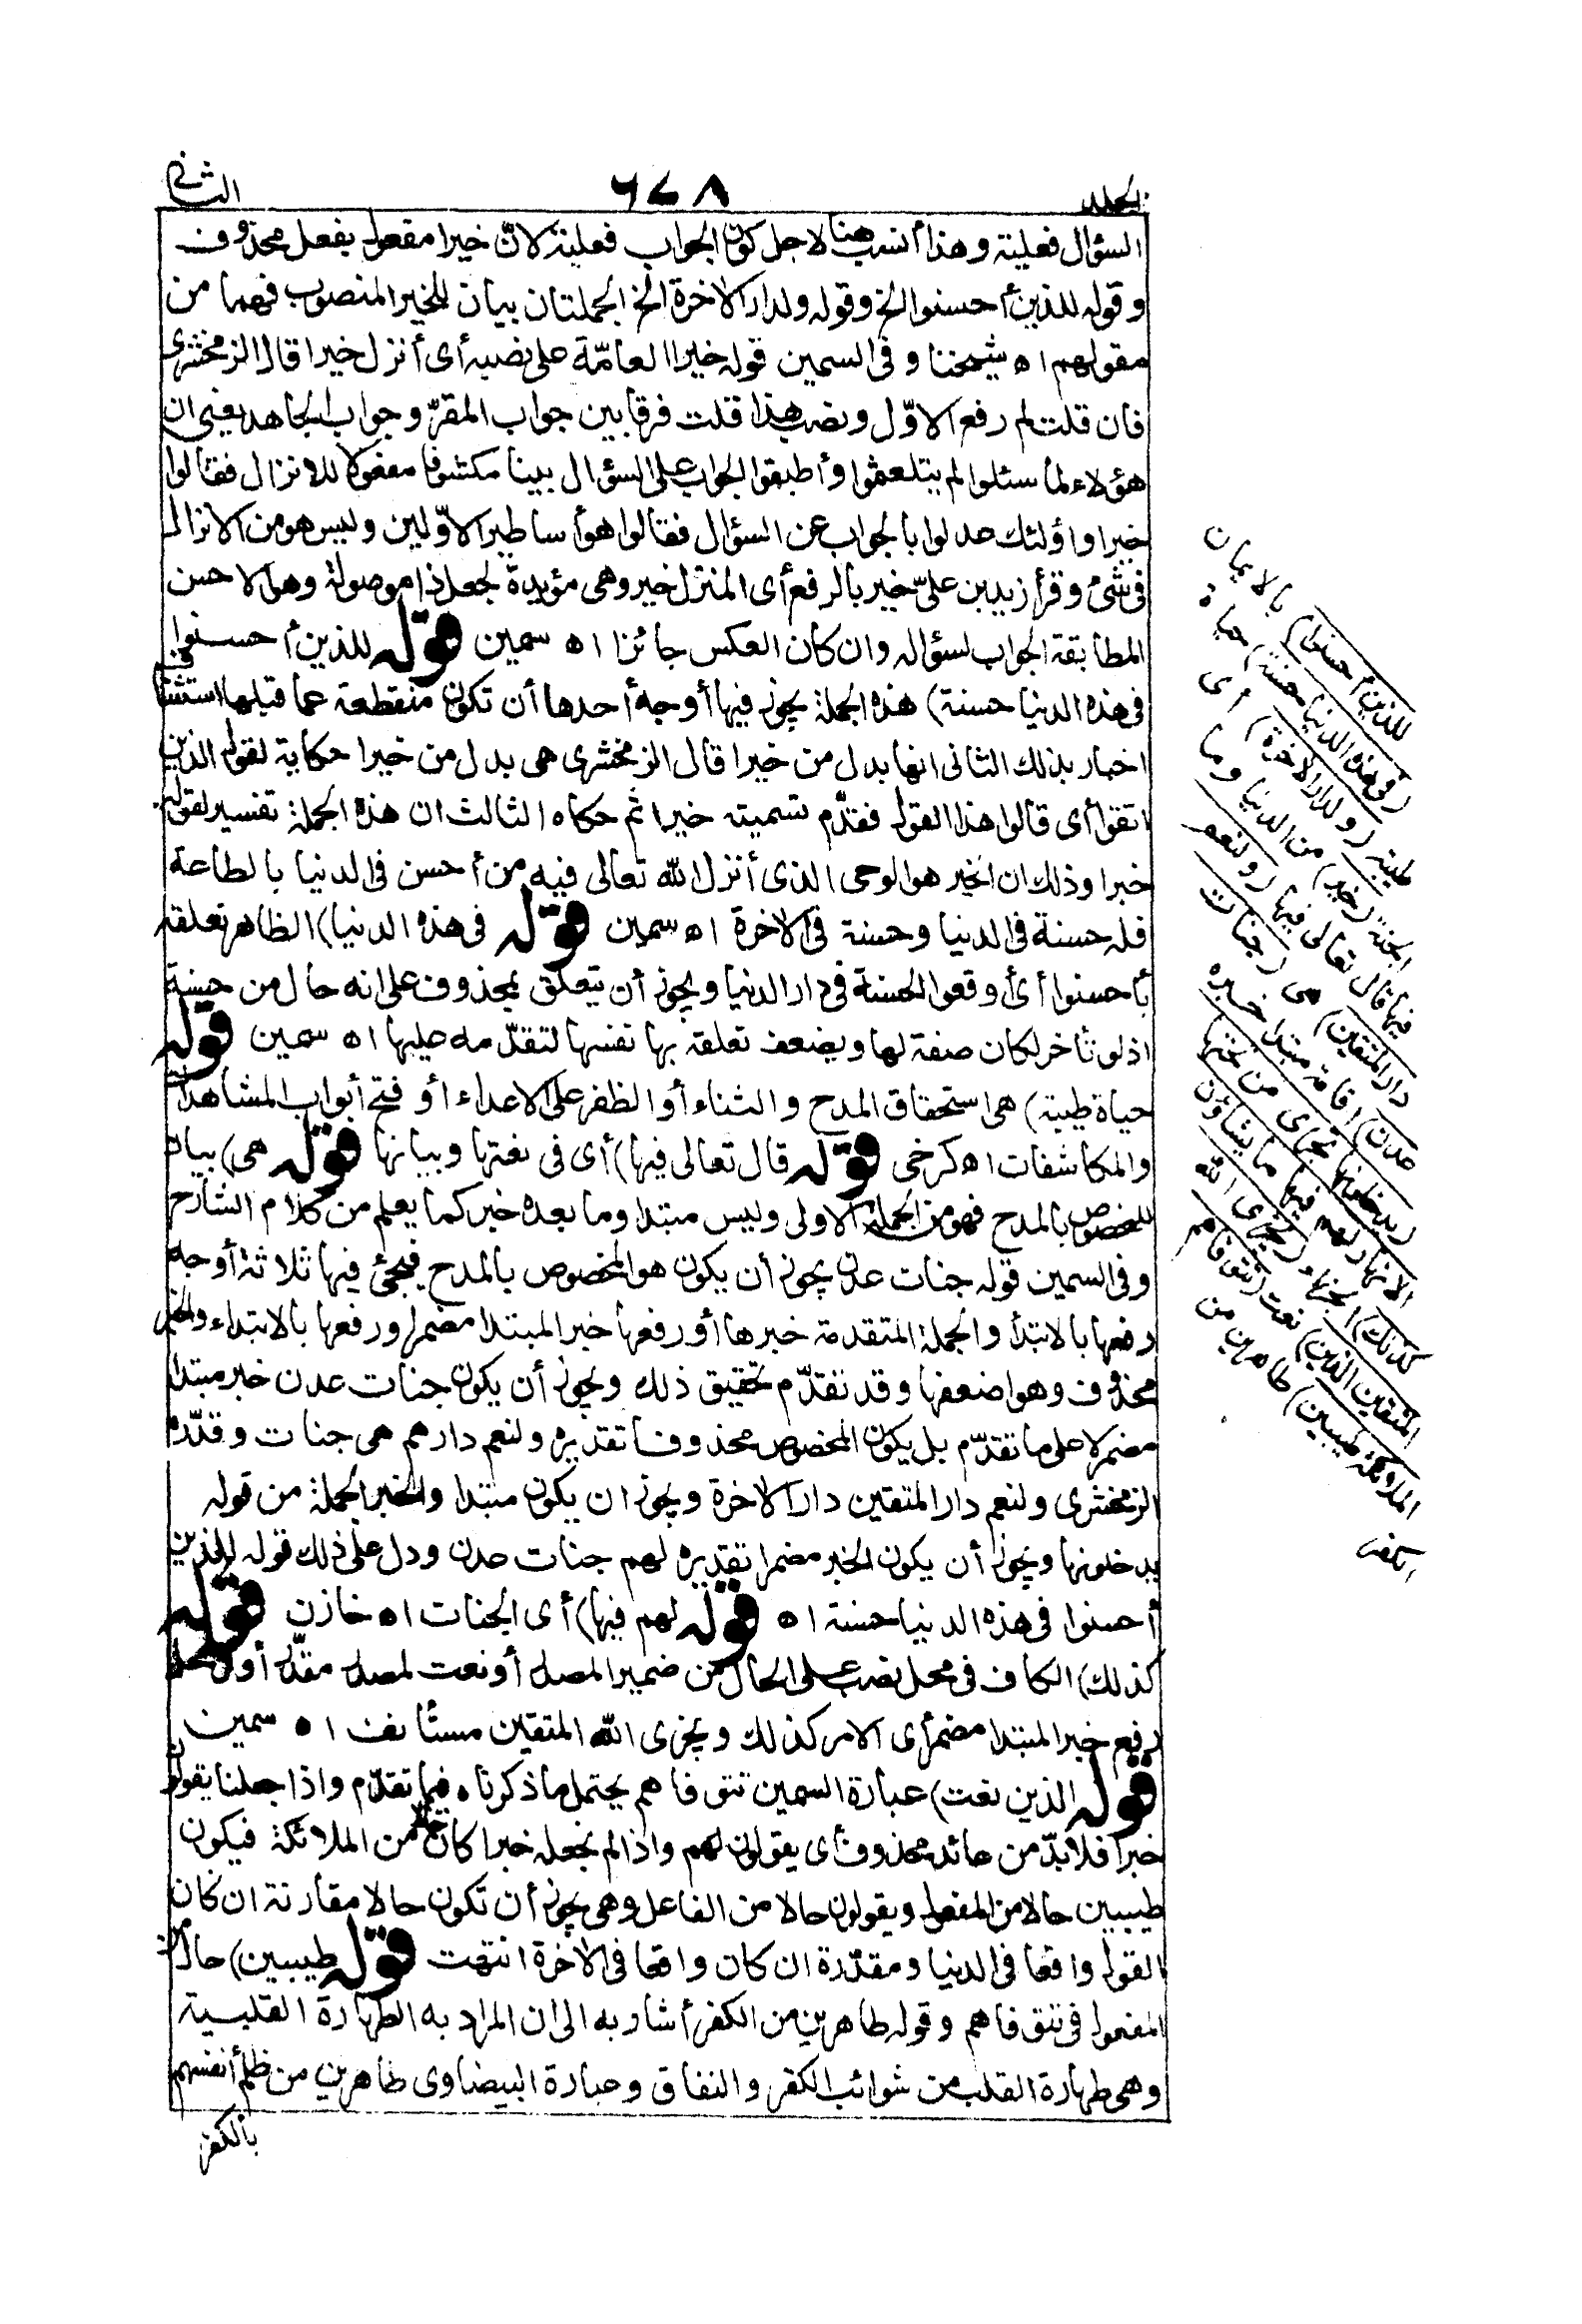 المجلد
٦٧٨
الثانى
السؤال فعلية وهذا أنسب هنا لاجل كون الجواب فعلية لانّ خيرا مفعول بفعل محذوف
وقوله للذين أحسنوا الخ وقوله ولدار الاخرة الخ الجملتان بيان للخير المنصوب فهما من
مقولهم اه شيخنا وفى السمين قوله خيرا العامّة على نصبه أى أنزل خيرا قال الزمخشرى
فان قلت لم رفع الاوّل ونصب هذا قلت فرقا بين جواب المقرّ وجواب الجاهد يعنى ان
هؤلاء لما سئلوا لم يتلعثموا وأطبقوا الجواب على السؤال بينا مكشوفا مفعولا للانزال فقالوا
خيرا واؤلئك عدلوا بالجواب عن السؤال فقالوا هو أساطير الاوّلين وليس هو من الانزال
فى شئ وقرأ زيد بن علىّ خير بالرفع أى المنزل خير وهى مؤيدة لجعل ذا موصولة وهو الاحسن
المطابقة الجواب لسؤاله وان كان العكس جائزا اه سمين قوله للذين أحسنوا
فى هذه الدنيا حسنة) هذه الجملة يجوز فيها أوجه أحدها أن تكون منقطعة عما قبلها استئناف
اخبار بذلك الثانى انها بدل من خيرا قال الزمخشرى هى بدل من خيرا حكاية لقول الذين
اتقوا أى قالوا هذا القول فقدّم تسميته خيرا ثم حكاه الثالث ان هذه الجملة تفسير لقوله
خيرا وذلك ان الخير هو الوحى الذى أنزل الله تعالى فيه من أحسن فى الدنيا بالطاعة
فله حسنة فى الدنيا وحسنة فى الاخرة اه سمين قوله فى هذه الدنيا) الظاهر تعلقه
بأحسنوا أى أوقعوا الحسنة فى دار الدنيا ويجوز أن يتعلق بمحذوف على انه حال من حسنة
اذ لو تأخر لكان صفة لها ويضعف تعلقه بها نفسها لتقدّمه عليها اه سمين قوله
حياة طيبة) هى استحقاق المدح والثناء أو الظفر على الاعداء أو فتح أبواب المشاهدات
والمكاشفات اه كرخى قوله قال تعالى فيها) أى فى نعتها وبيانها قوله هى) بيان
للمخصوص بالمدح فهو من الجملة الاولى وليس مبتدا وما بعده خبر كما يعلم من كلام الشارح
وفى السمين قوله جنات عدن يجوز أن يكون هو المخصوص بالمدح فيجئ فيها ثلاثة أوجه
رفعها بالابتدأ والجملة المتقدمة خبرها أو رفعها خبر المبتدا مضمر أو رفعها بالابتداء والخبر
محذوف وهو اضعفها وقد تقدّم تحقيق ذلك ويجوز أن يكون جنات عدن خبر مبتدا
مضمر لا على ما تقدّم بل يكون المخصوص محذوفا تقديره ولنعم دارهم هى جنات وقدّره
الزمخشرى ولنعم دار المتقين دار الاخرة ويجوز ان يكون مبتدا والخبر الجملة من قوله
يدخلونها ويجوز أن يكون الخبر مضمرا تقديره لهم جنات عدن ودل على ذلك قوله للذين
أحسنوا فى هذه الدنيا حسنة اه قوله لهم فيها) أى الجنات اه خازن قوله
كذلك) الكاف فى محل نصب على الحال من ضمير المصدر أو نعت لمصدر مقدّر أو فى محل
رفع خبر المبتدا مضمر أى الامر كذلك ويجزى الله المتقين مستأنف اه سمين
قوله الذين نعت) عبارة السمين تتوفاهم يحتمل ما ذكرناه فيما تقدّم واذا جعلنا يقولون
خبرا فلا بدّ من عائد محذوف أى يقولون لهم واذا لم نجعله خبرا كان حالا من الملائكة فيكون
طيبين حالا من المفعول ويقولون حالا من الفاعل وهى يجوز أن تكون حالا مقارنة ان كان
القول واقعا فى الدنيا ومقدّرة ان كان واقعا فى الاخرة انتهت قوله طيبين) حال من
المفعول فى تتوفاهم وقوله طاهرين من الكفر أشار به الى ان المراد به الطهارة القلبية
وهى طهارة القلب من شوائب الكفر والنفاق وعبارة البيضاوى طاهرين من ظلم أنفسهم
بالكفر
للذين أحسنوا) بالايمان
(فى هذه الدنيا حسنة) حياة
طيبة (ولدار الاخرة) أى
الجنة (خير) من الدنيا وما
فيها قال تعالى فيها (ولنعم
دار المتقين) هى (جنات
عدن) اقامة مبتدا خبره
(يدخلونها تجرى من تحتها
الانهار لهم فيها ما يشاؤن
كذلك) الجزاء (يجزى الله
المتقين الذين) نعت (تتوفاهم
الملائكة طيبين) طاهرين من
الكفر